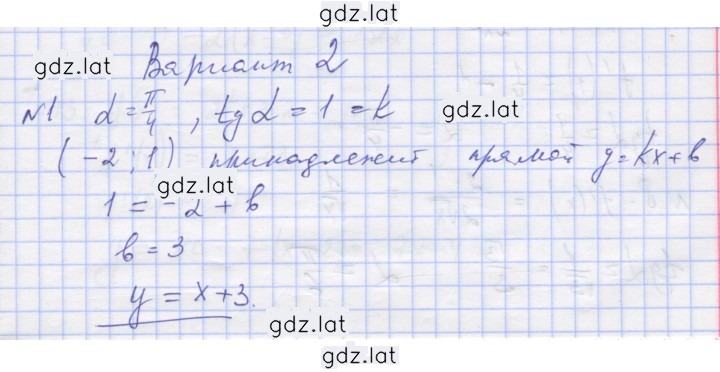 gdz.lat
gdz.lat Вариант 2
№1 α = π/4 , tg α = 1 = k gdz.lat
(-2 ; 1) принадлежит прямой y = kx + b
gdz.lat
1 = -2 + b
b = 3
y = x + 3.
gdz.lat
gdz.lat